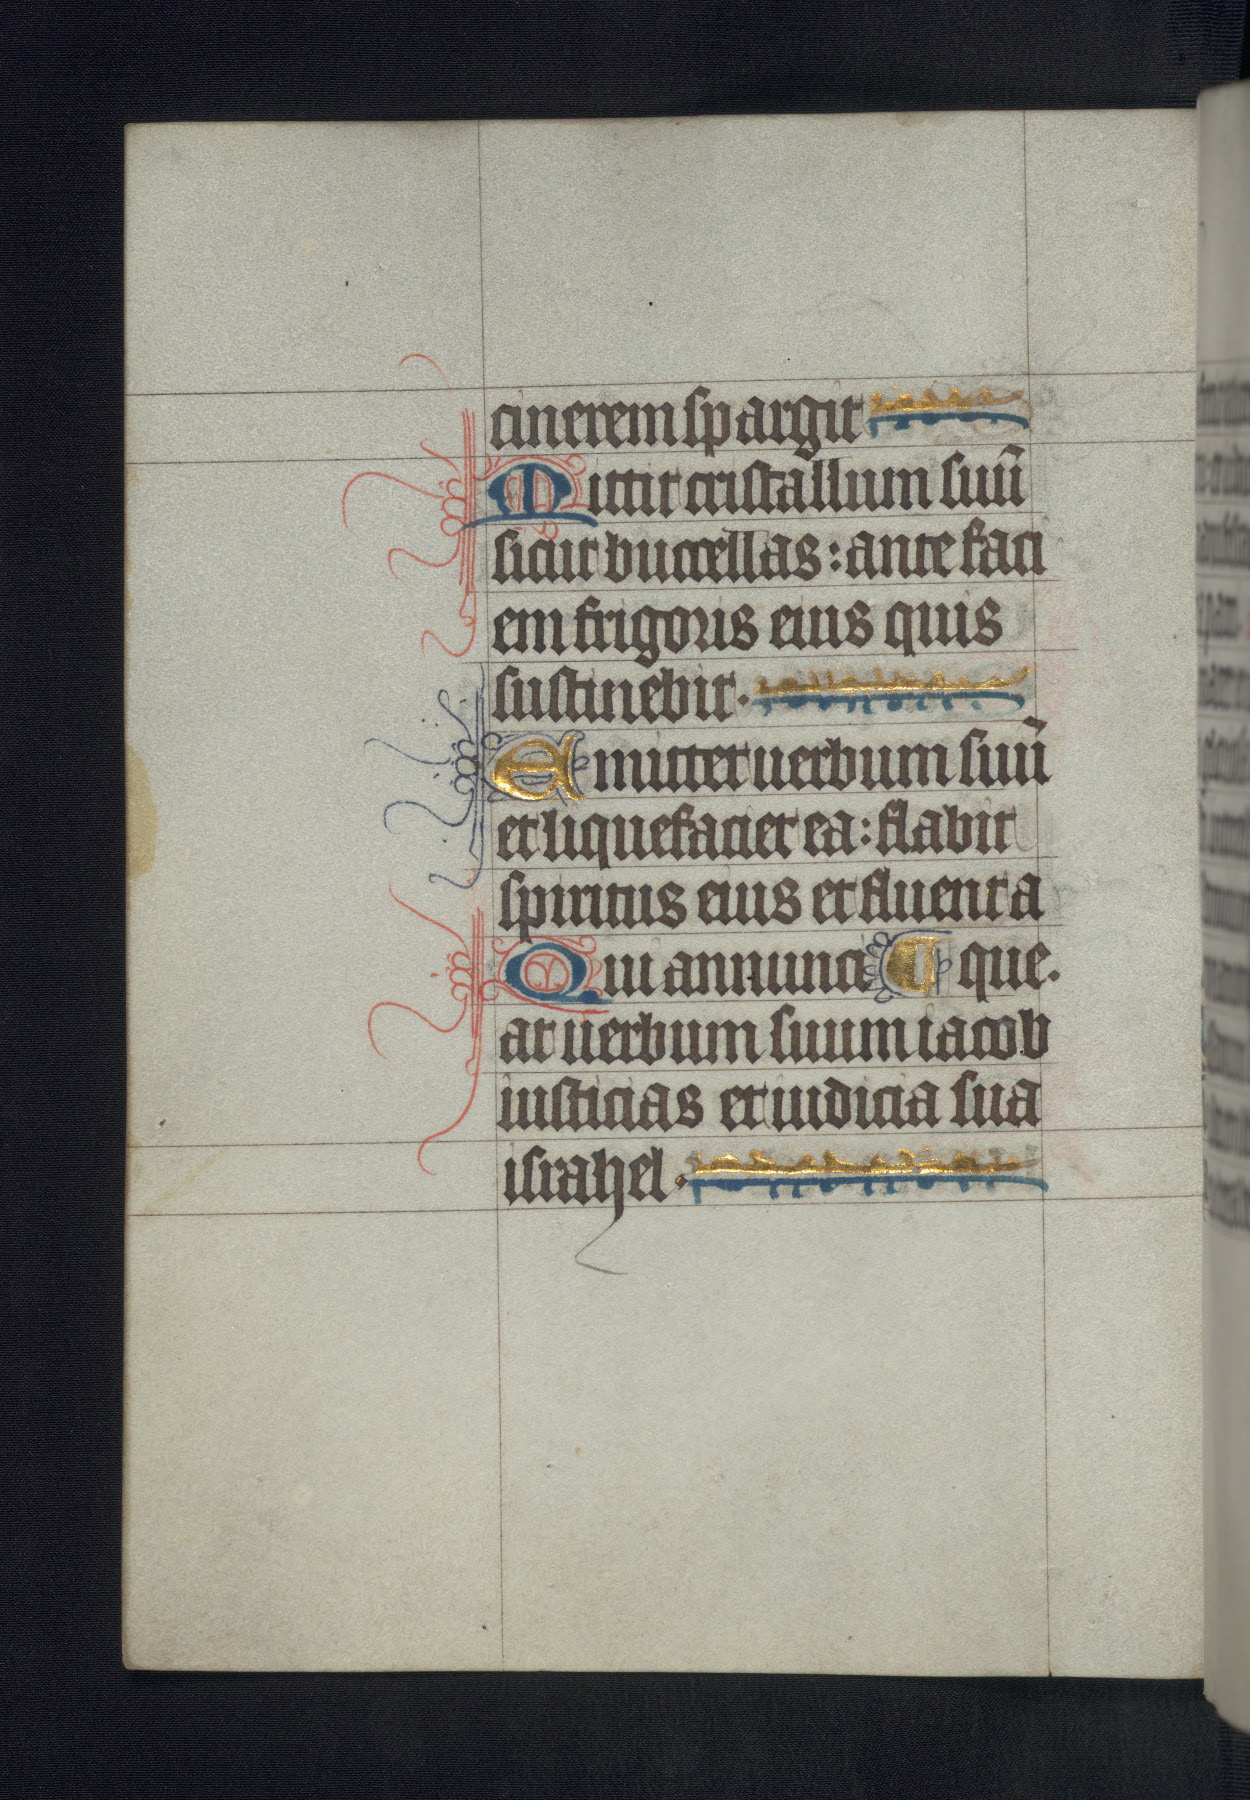 cinerem spargit
Mittit cristallum suū
sicut buccellas : ante faci
em frigoris eius quis
sustinebit.
Emittet uerbum suū
et liquefaciet ea : flabit
spiritus eius et fluent a
Qui annunci ¶ que.
at uerbum suum iacob
iusticias et iudicia sua
israhel.